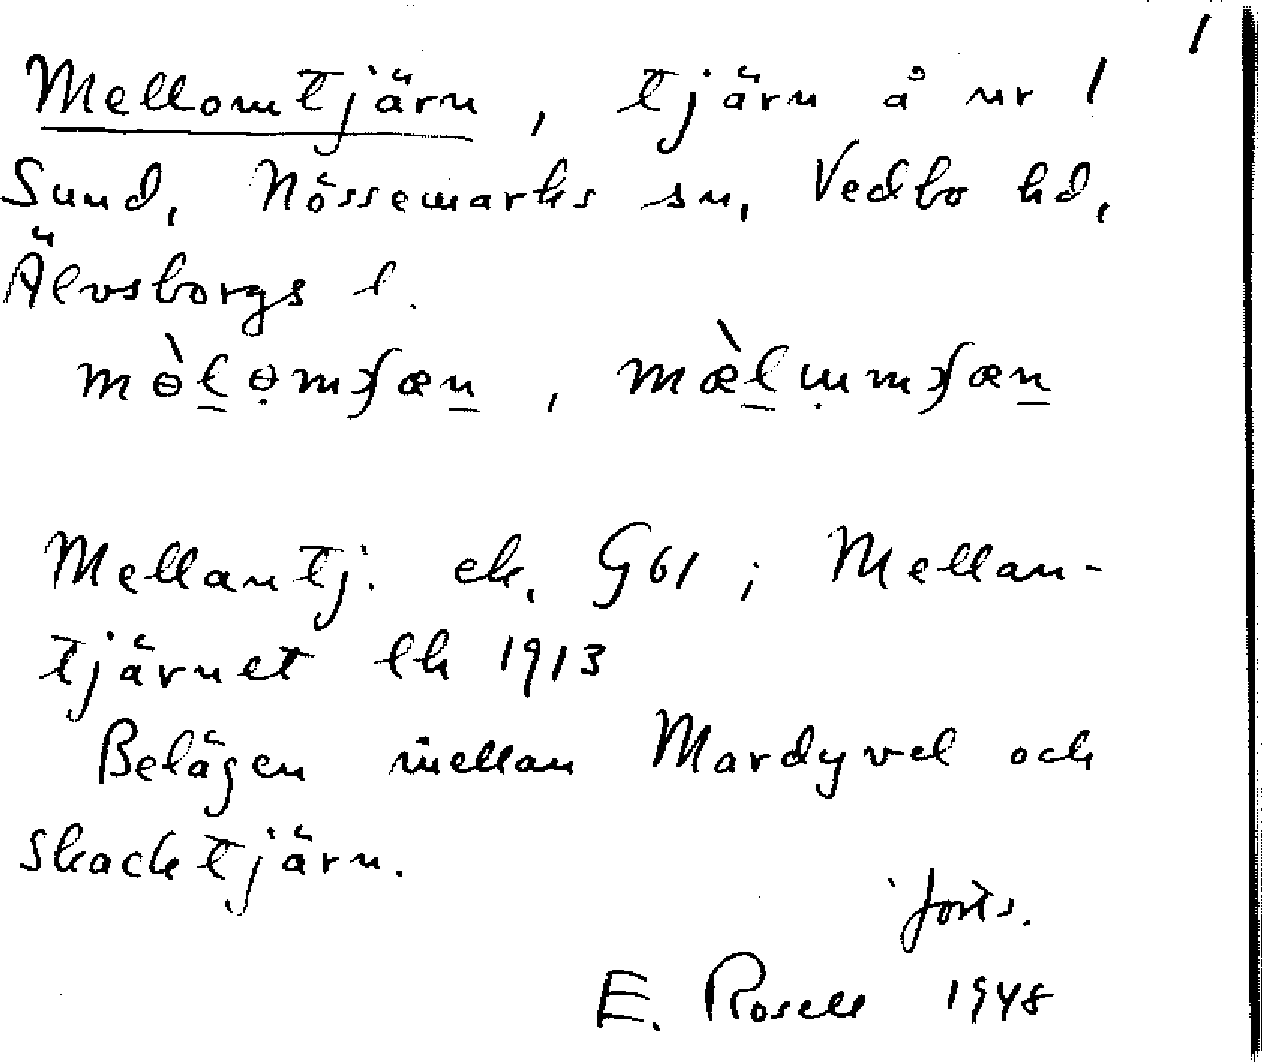 1
Mellomtjärn, tjärn å nr 1
Sund, Nössemarks sn, Vedbo hd,
Älvsborgs l.
mɵ̀l̠ɵ̣mʂæn̠, mæ̀l̠ɯ̣mʂæn̠
Mellantj. ek. G61; Mellan-
tjärnet lk 1913
Belägen mellan Mardyvel och
Skacktjärn.
forts.
E. Rosell 1948